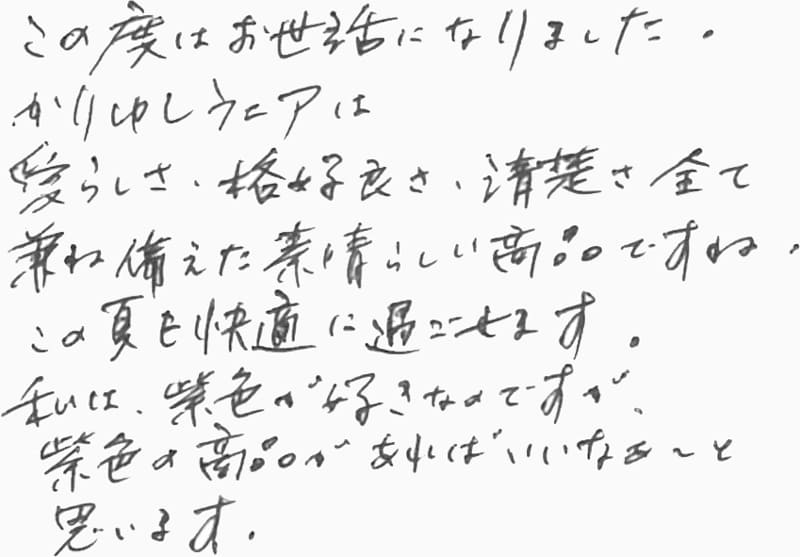 この度はお世話になりました。
かりゆしウェアは
愛らしさ、格好良さ、清楚さ全て
兼ね備えた素晴らしい商品ですね。
この夏も快適に過ごせます。
私は、紫色が好きなのですが、
紫色の商品があればいいなぁ〜と
思います。